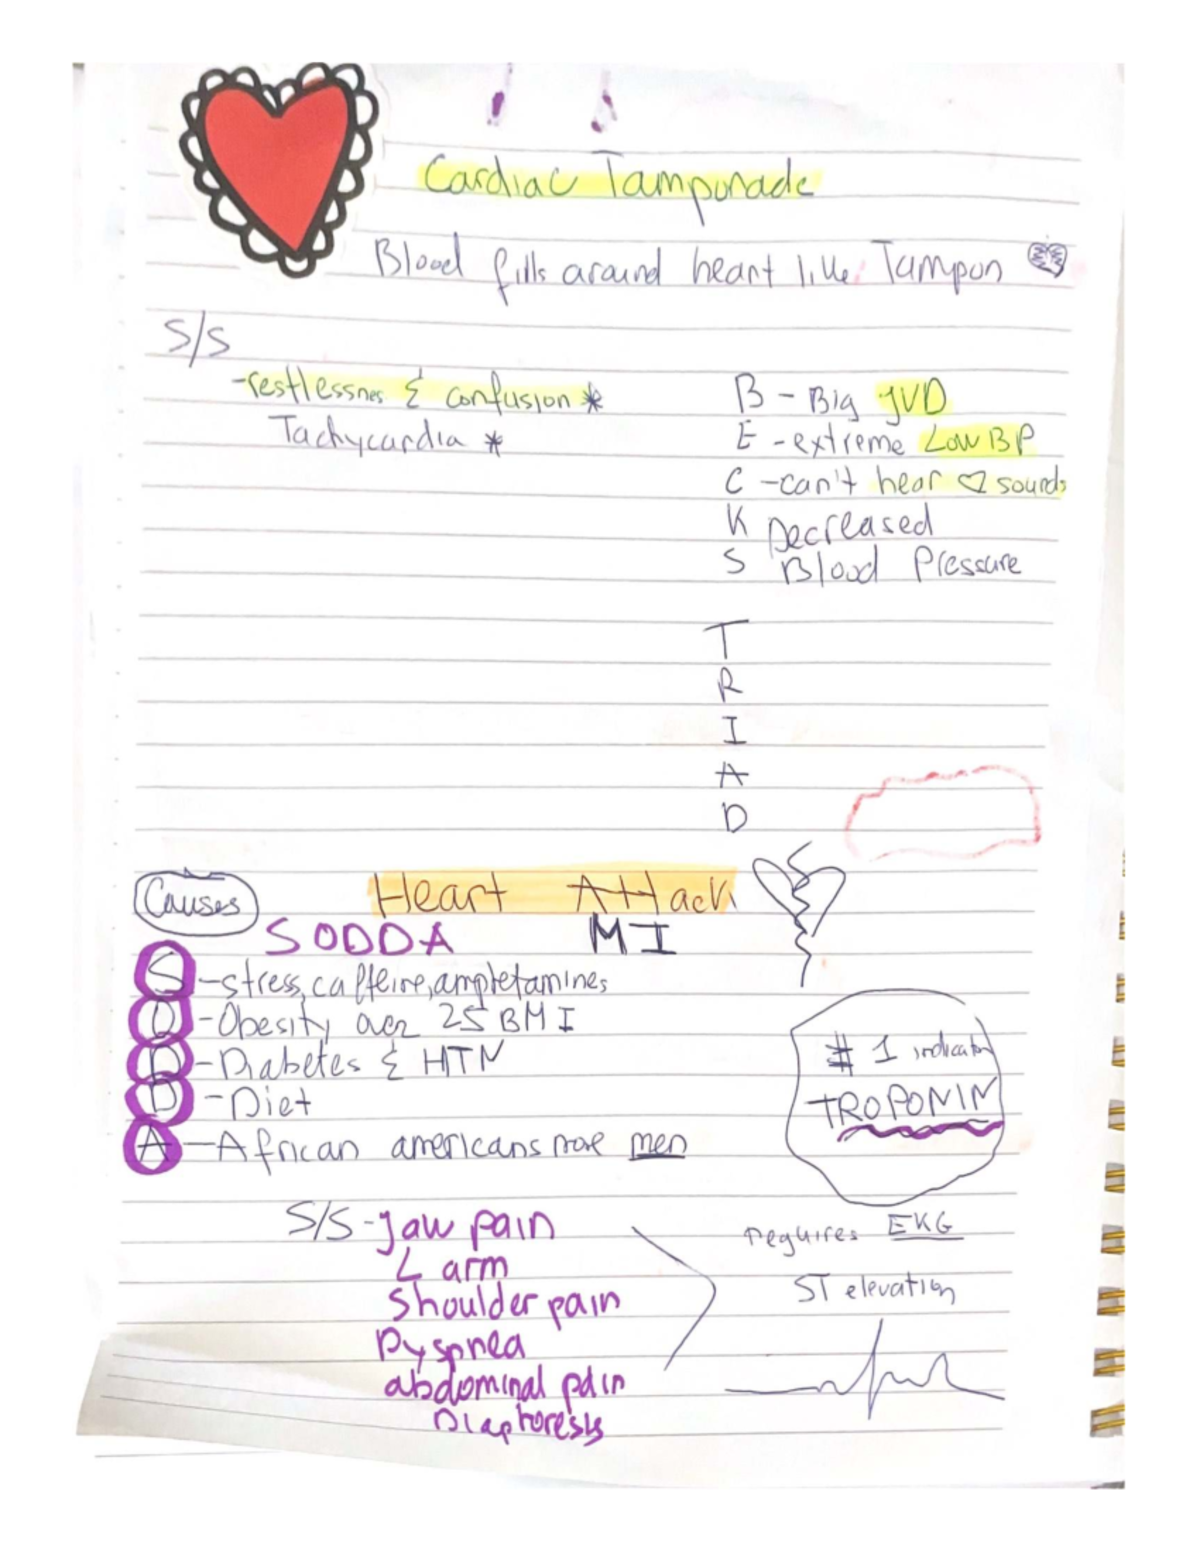 Cardiac Tamponade
Blood fills around heart like Tampon
S/S
-restlessnes & confusion *
Tachycardia *
B - Big JVD
E - extreme Low BP
C - can't hear ♡ sounds
K Decreased
S Blood Pressure
T
R
I
A
D
Causes
Heart Attack
SODDA MI
S - stress, caffeine, amphetamines
O - Obesity over 25 BMI
D - Diabetes & HTN
D - Diet
A - African americans more men
# 1 indicator
TROPONIN
S/S - Jaw pain
L arm
Shoulder pain
Dyspnea
abdominal pain
Diaphoresis
requires EKG
ST elevation